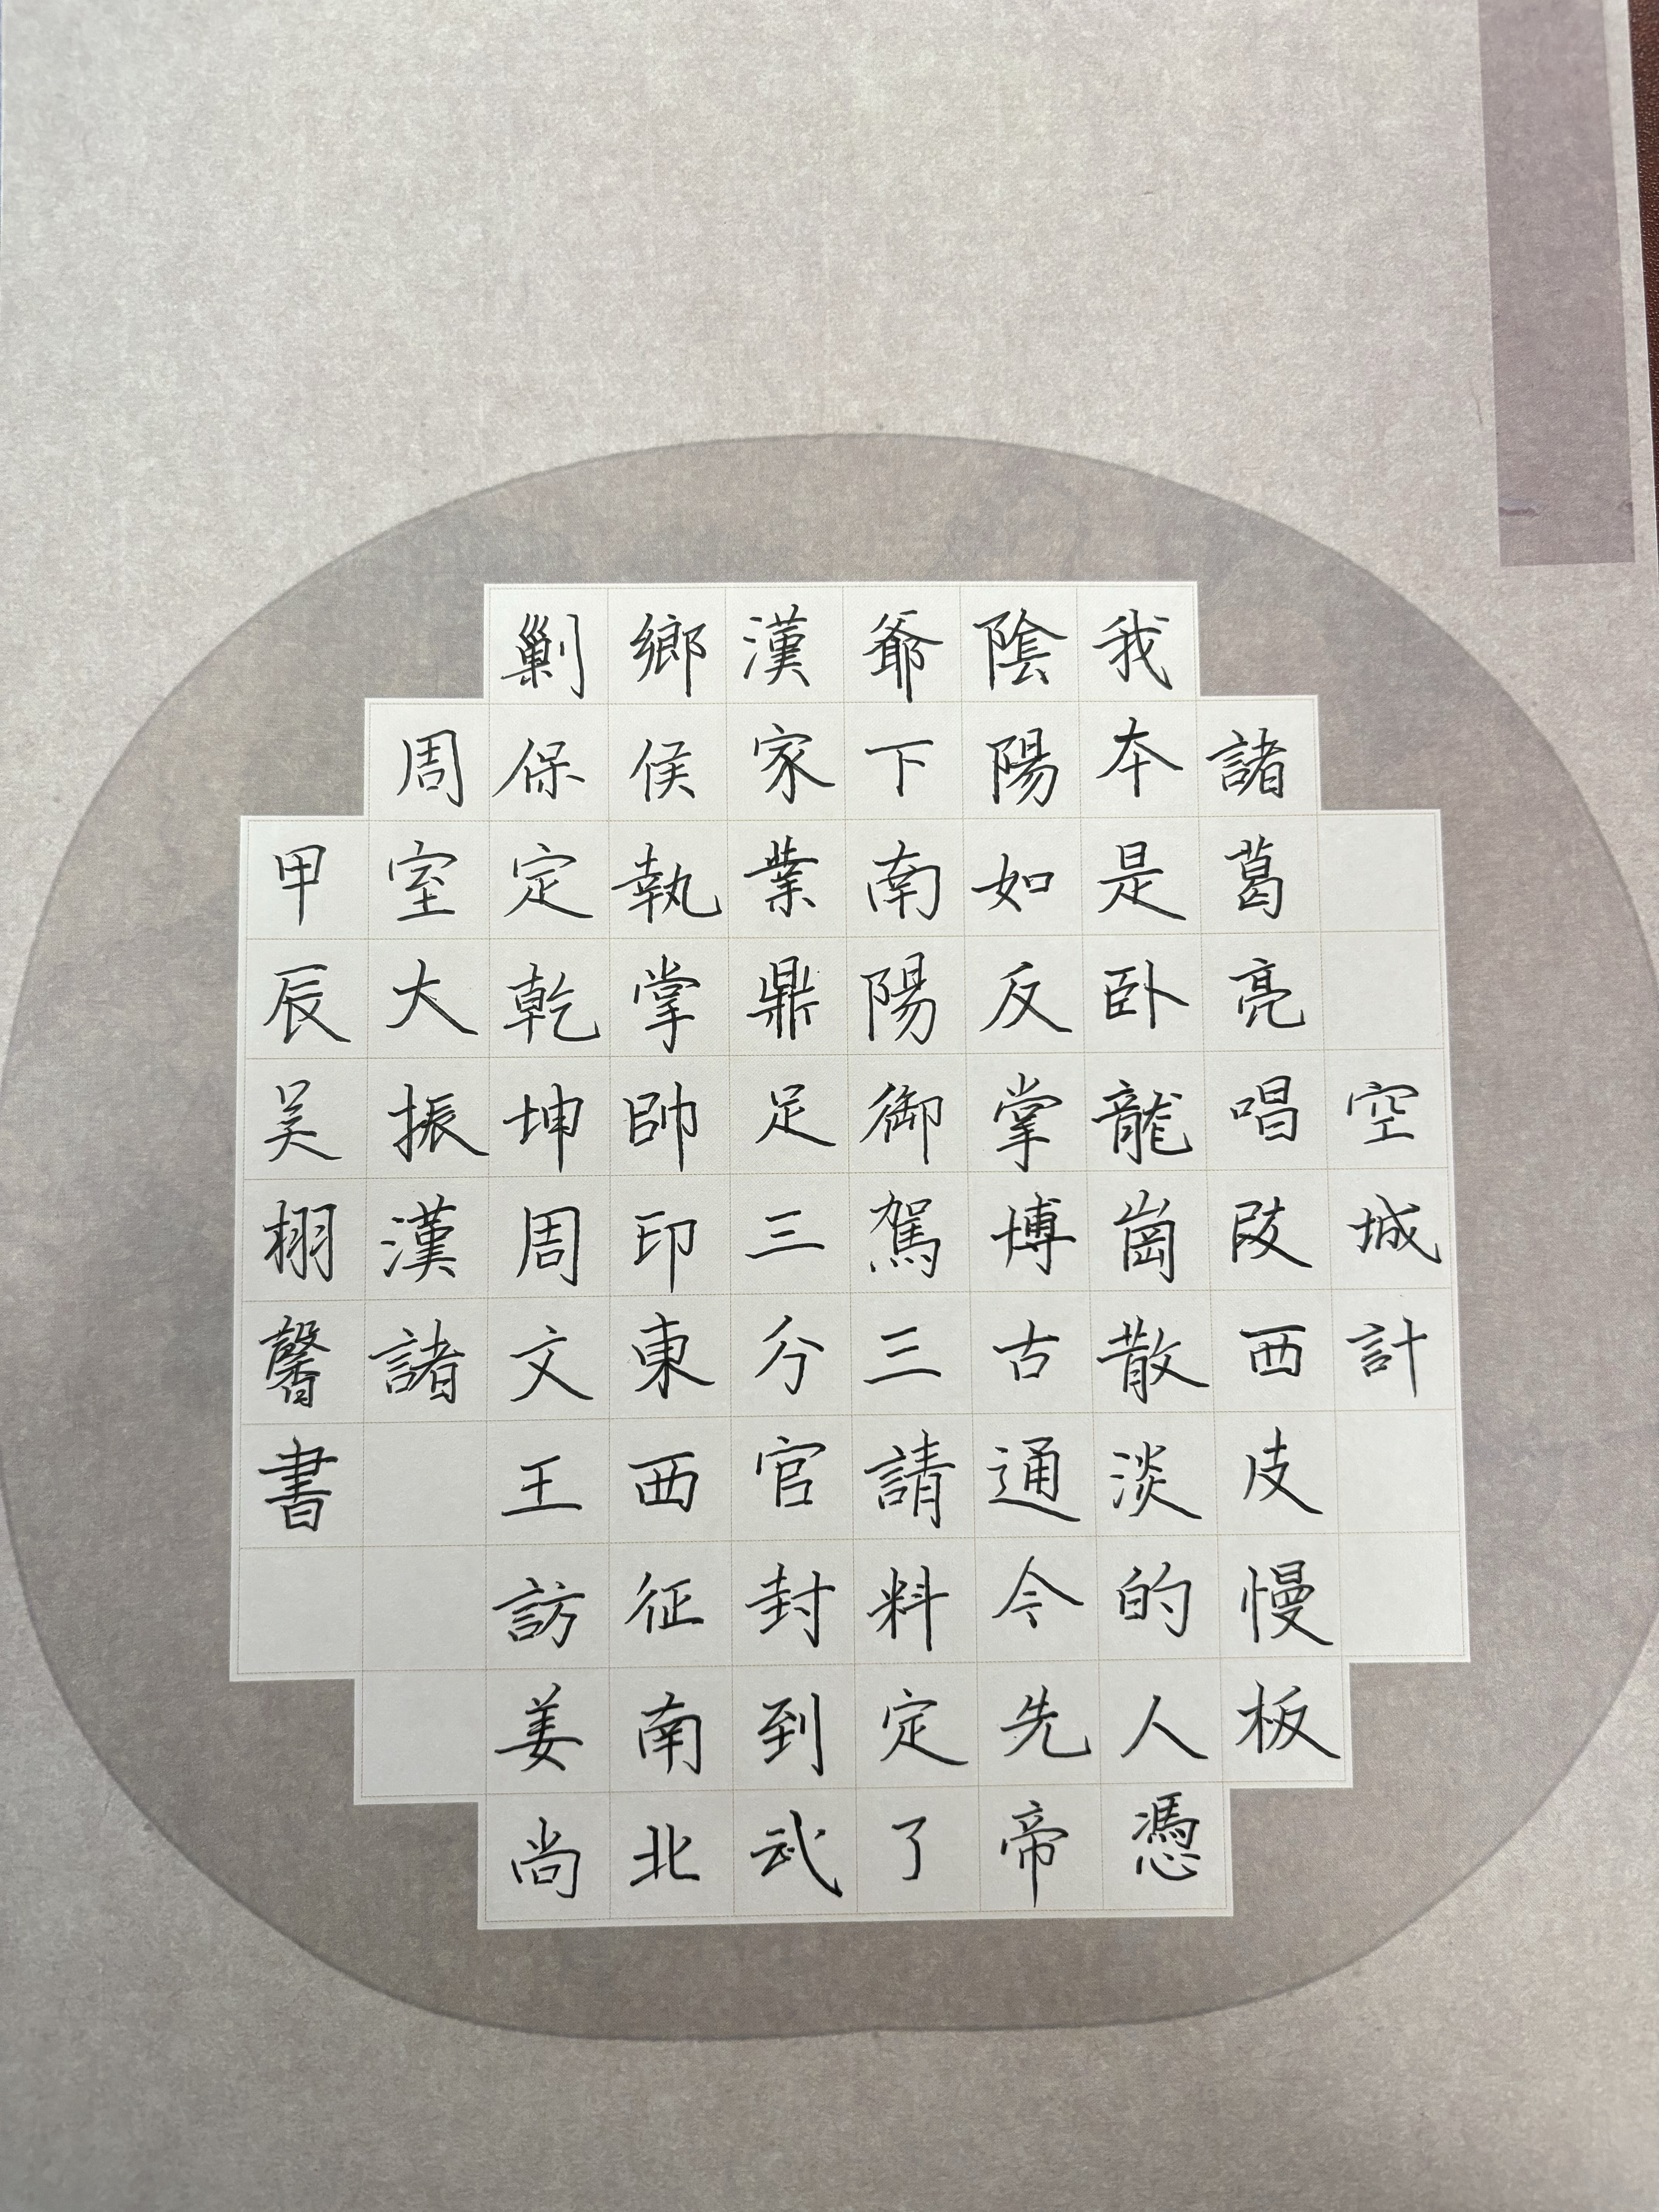 空城計
諸葛亮唱段西皮慢板
我本是卧龍崗散淡的人憑
陰陽如反掌博古通今先帝
爺下南陽御駕三請料定了
漢家業鼎足三分官封到武
鄉侯執掌帥印東西征南北
剿保定乾坤周文王訪姜尚
周室大振漢諸
甲辰吴栩馨書